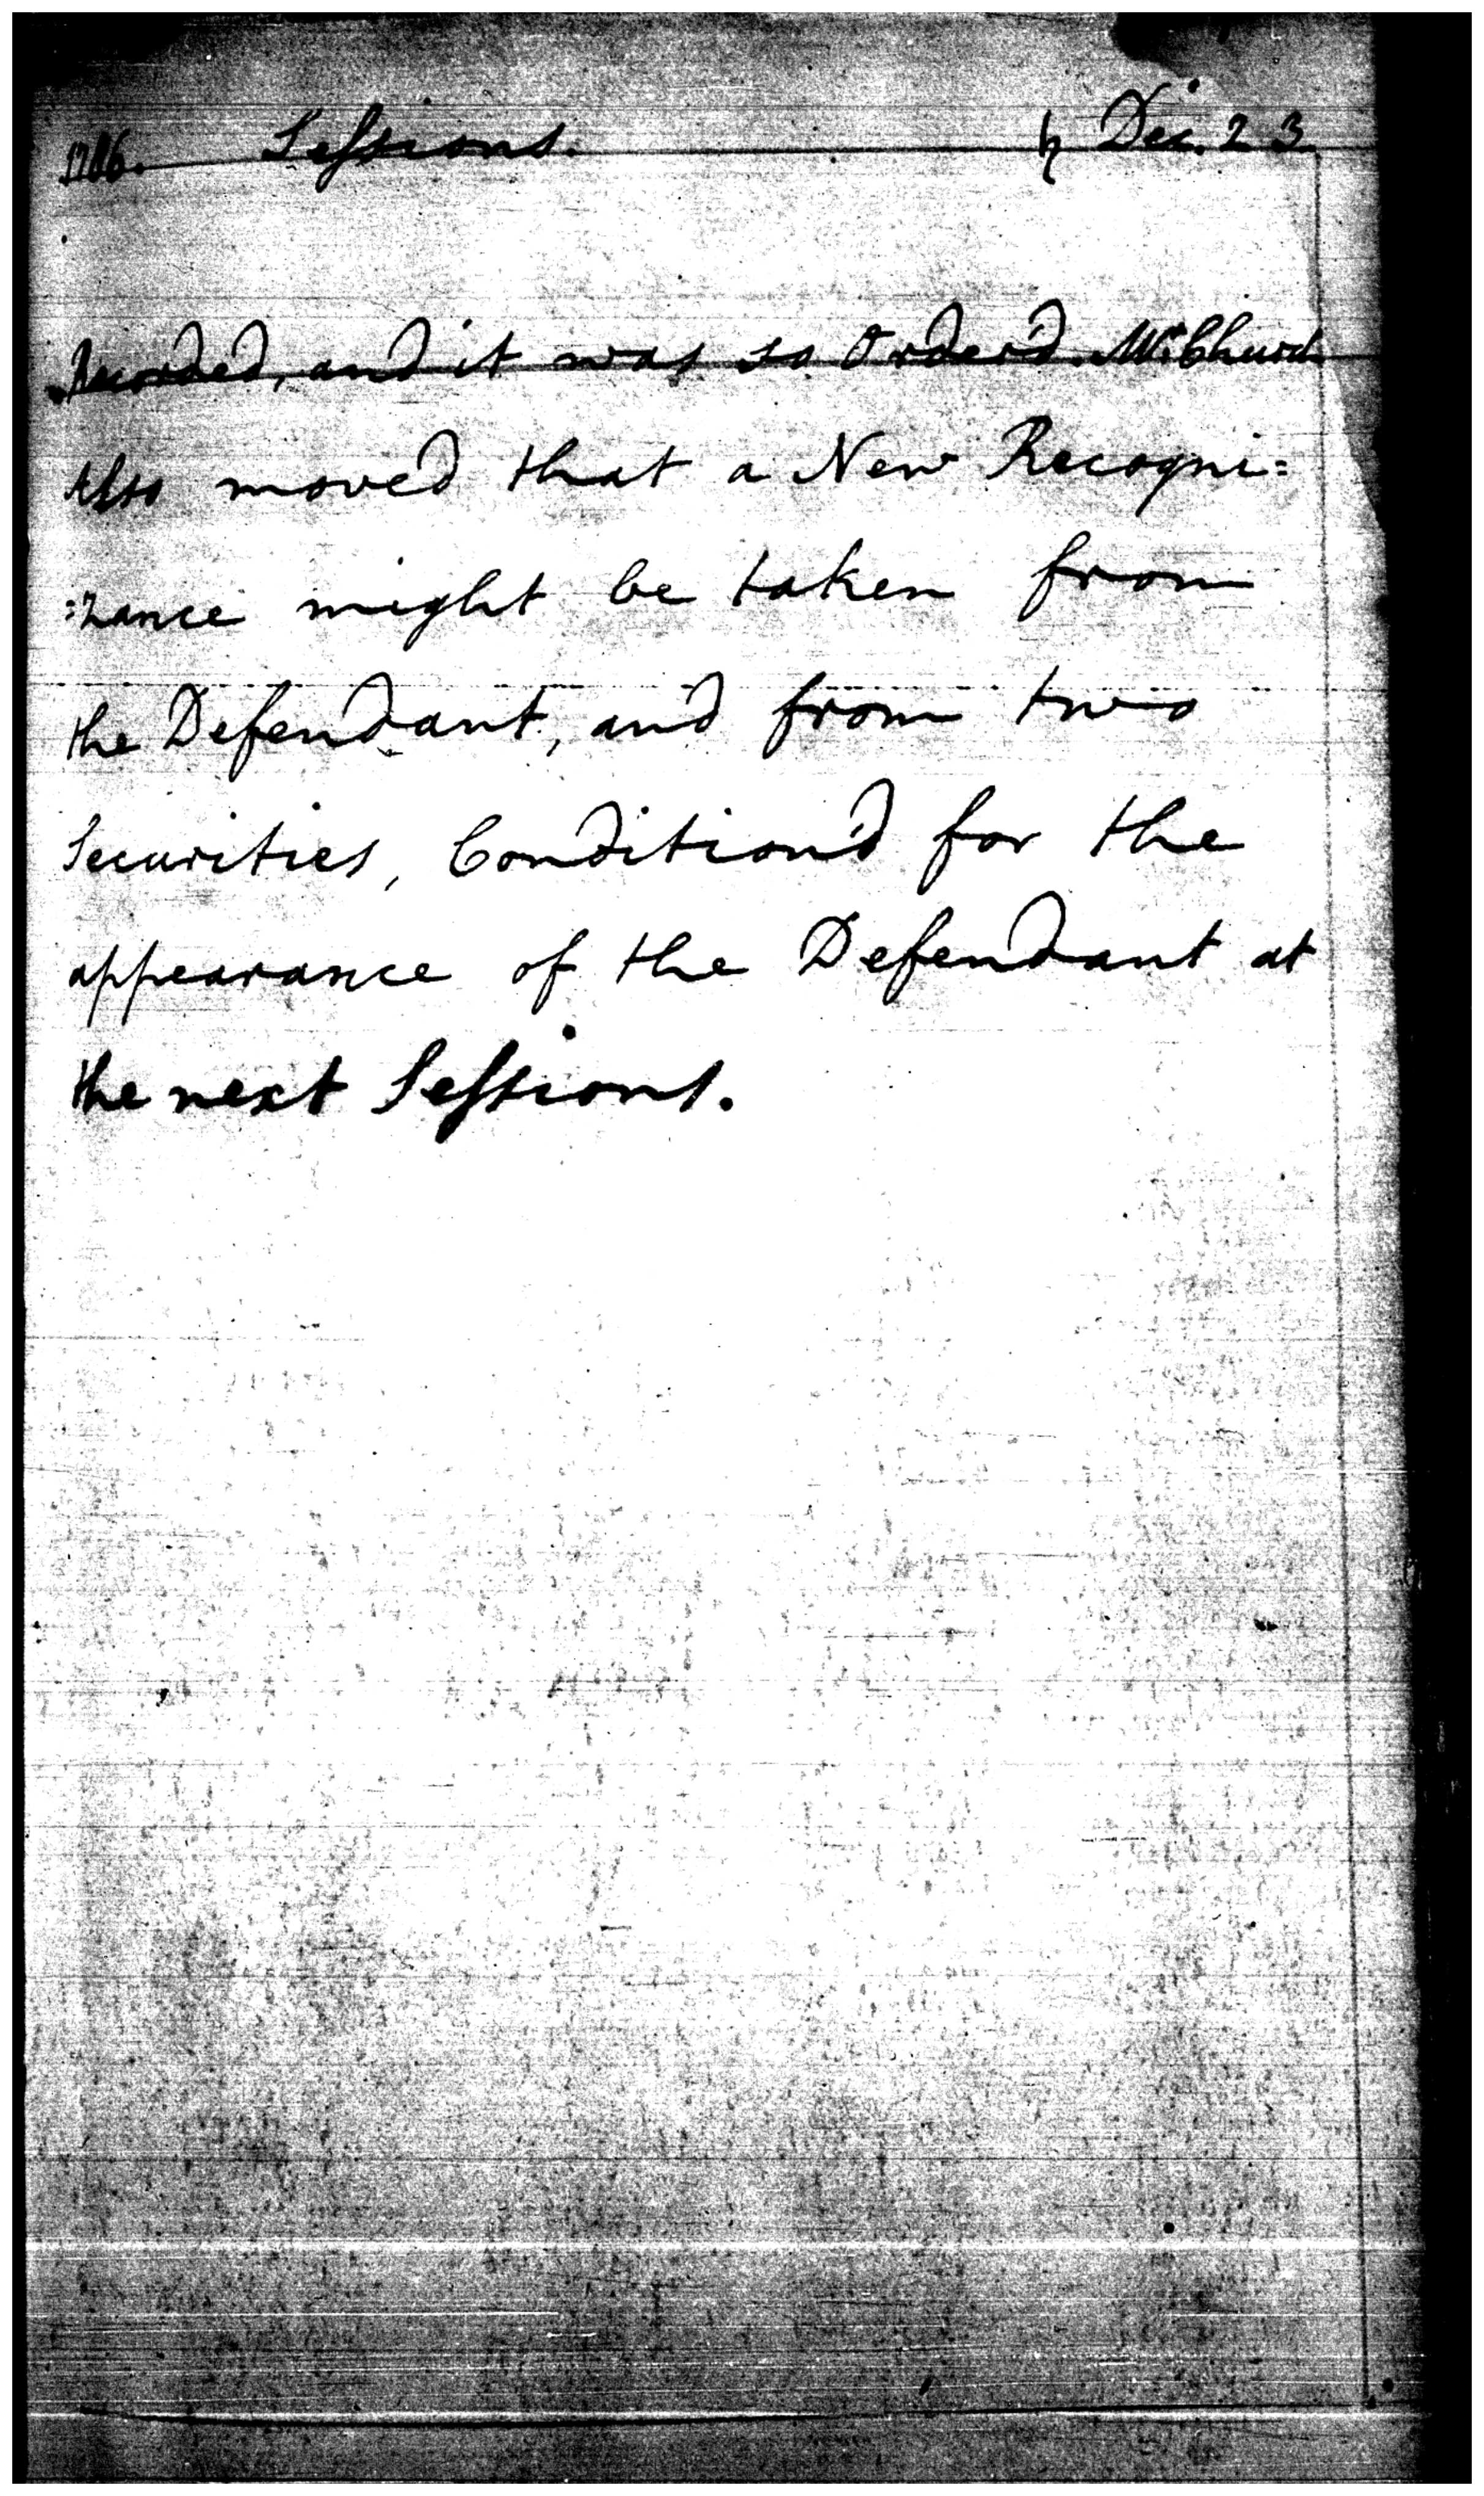 1786. Sessions. ♄ Dec. 23.
Recorded, and it was so Order'd. Mr. Church
Also moved that a New Recogni=
=zance might be taken from
the Defendant, and from two
Securities, Condition'd for the
appearance of the Defendant at
the next Sessions.